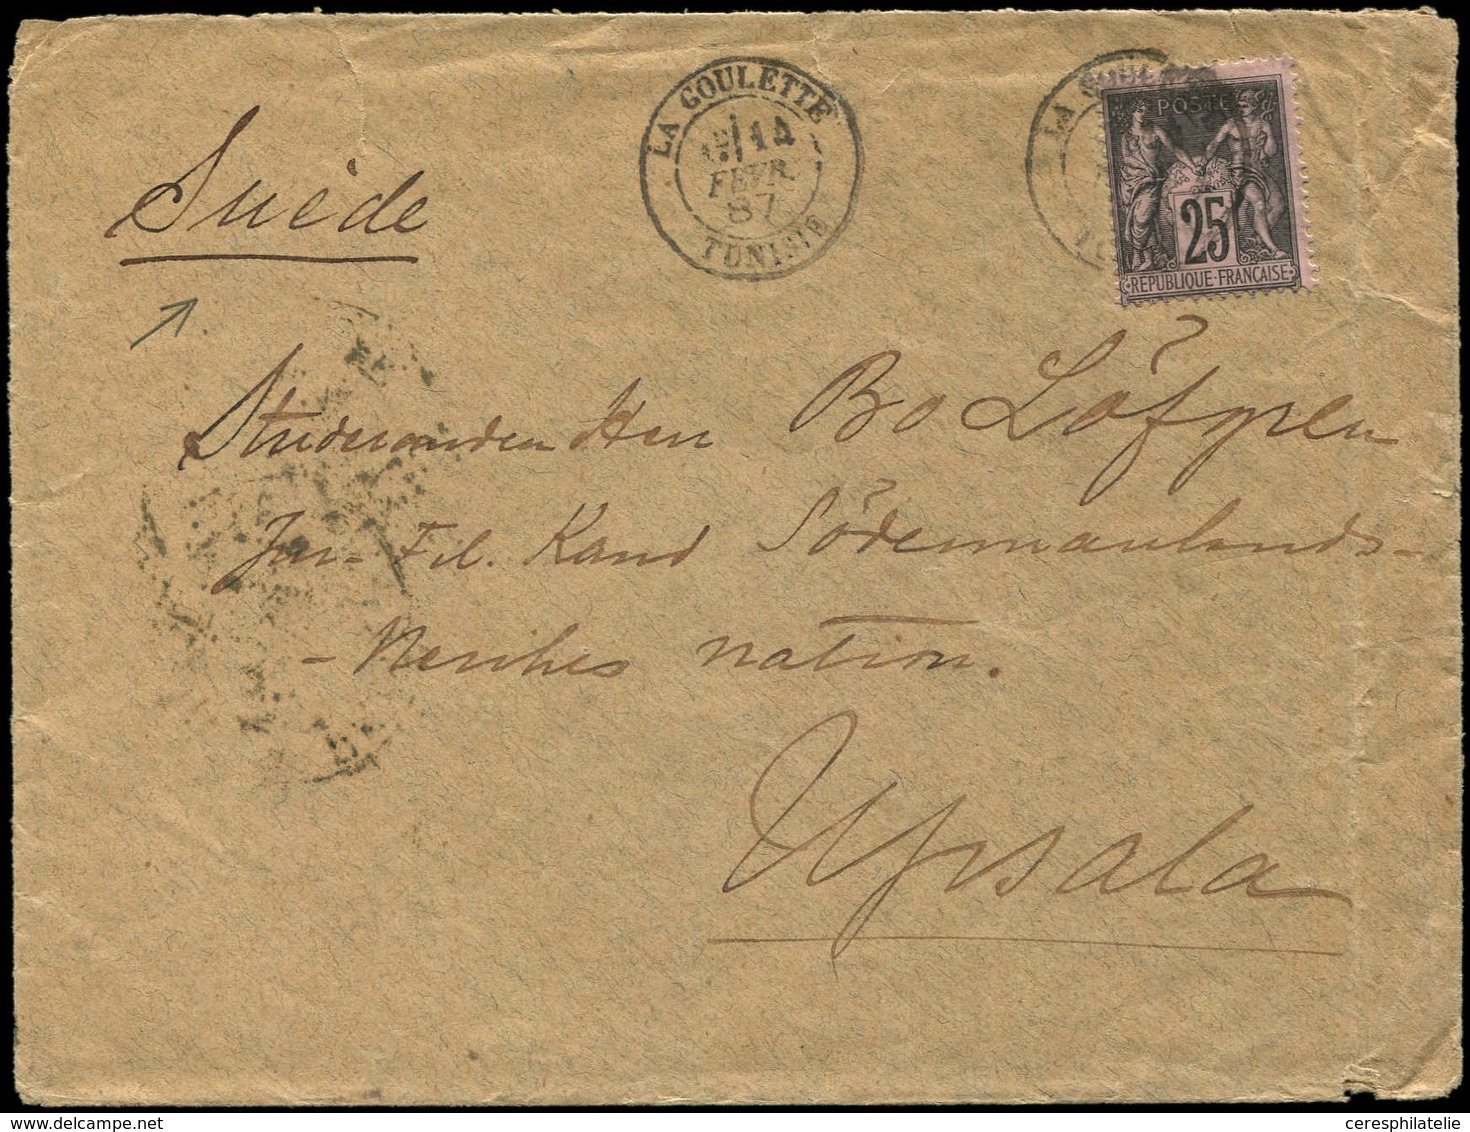 LA GOULETTE
14
FEVR.
87
TUNISIE
LA GOULE
POSTE
25
REPUBLIQUE FRANÇAISE
Suède
Studeranden Herr Bo Löfgren
Fil. Kand Södermanlands-
-Nerikes nation.
Upsala
ceresphilatelie